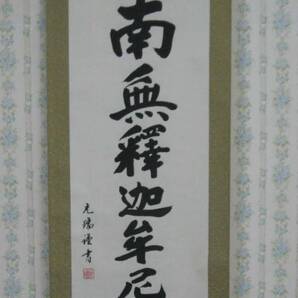 南無釋迦牟尼
光瑞謹書